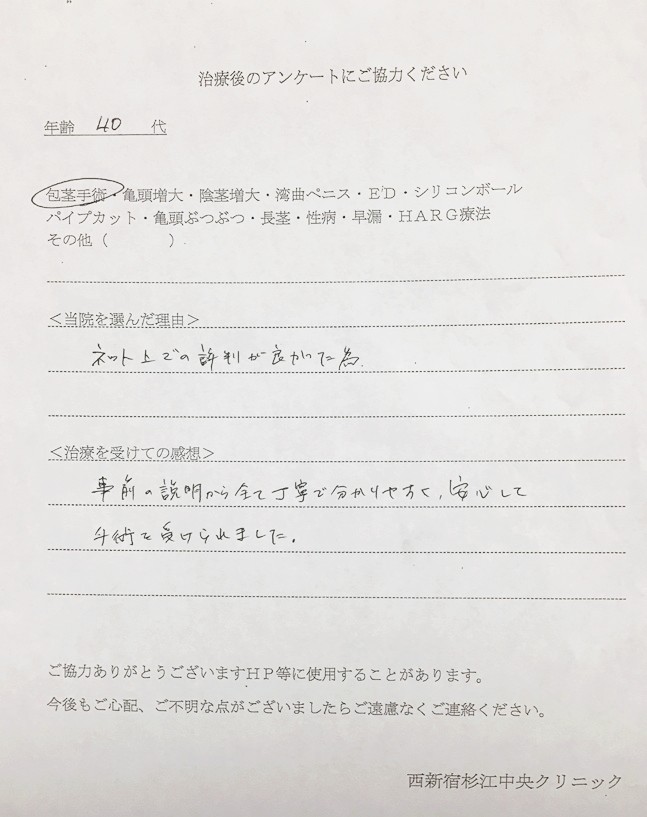 治療後のアンケートにご協力ください
年齢 40 代
包茎手術・亀頭増大・陰茎増大・湾曲ペニス・ED・シリコンボール
パイプカット・亀頭ぶつぶつ・長茎・性病・早漏・HARG療法
その他（　　　）
＜当院を選んだ理由＞
ネット上での評判が良かった為
＜治療を受けての感想＞
事前の説明から全て丁寧で分かりやすく、安心して
手術を受けられました。
ご協力ありがとうございますHP等に使用することがあります。
今後もご心配、ご不明な点がございましたらご遠慮なくご連絡ください。
西新宿杉江中央クリニック